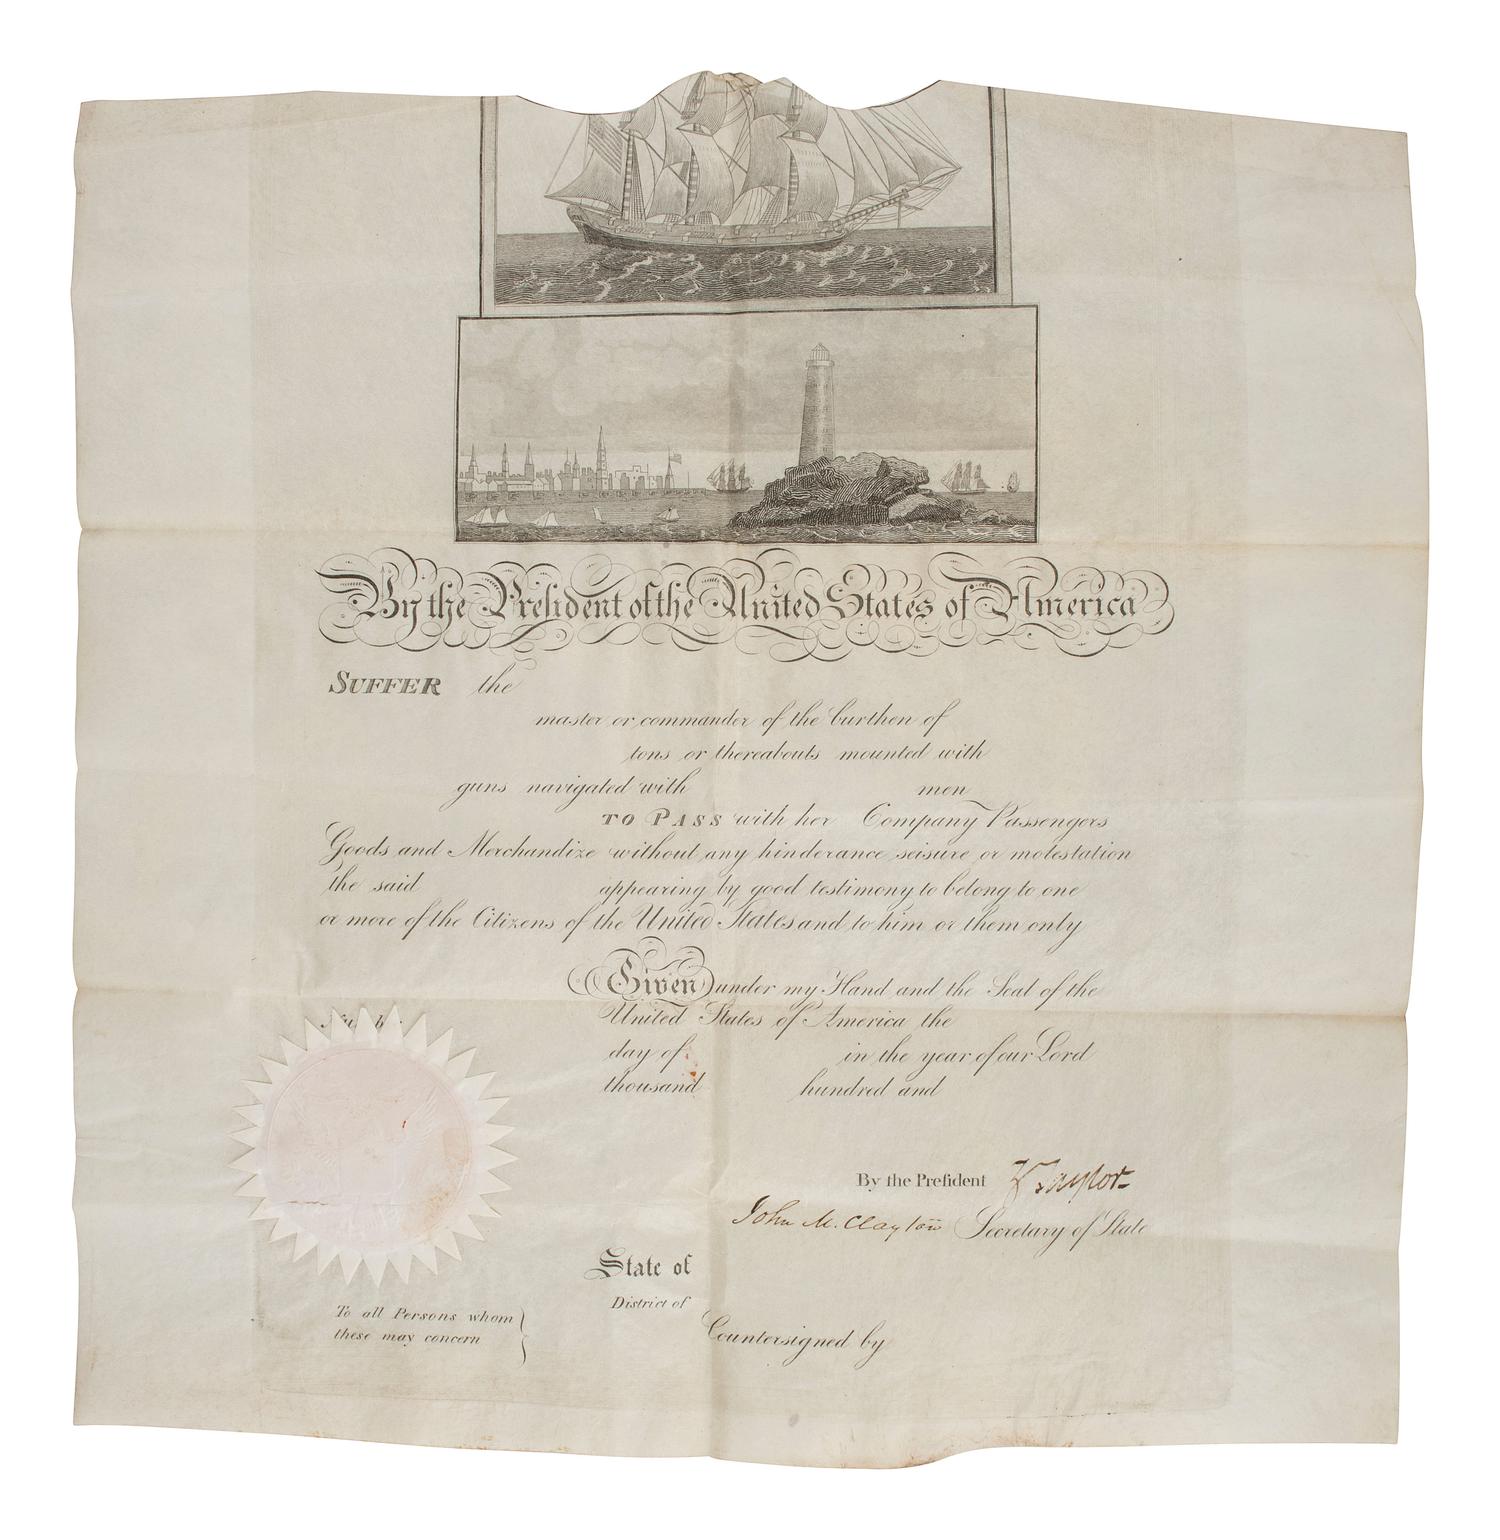 By the President of the United States of America
SUFFER the
master or commander of the burthen of
tons or thereabouts mounted with
guns navigated with men
TO PASS with her Company Passengers
Goods and Merchandize without any hinderance seisure or molestation
the said appearing by good testimony to belong to one
or more of the Citizens of the United States and to him or them only
Given under my Hand and the Seal of the
United States of America the
day of in the year of our Lord
thousand hundred and
By the Preſident Z Taylor
John M. Clayton Secretary of State
State of
District of
To all Persons whom
these may concern
Countersigned by